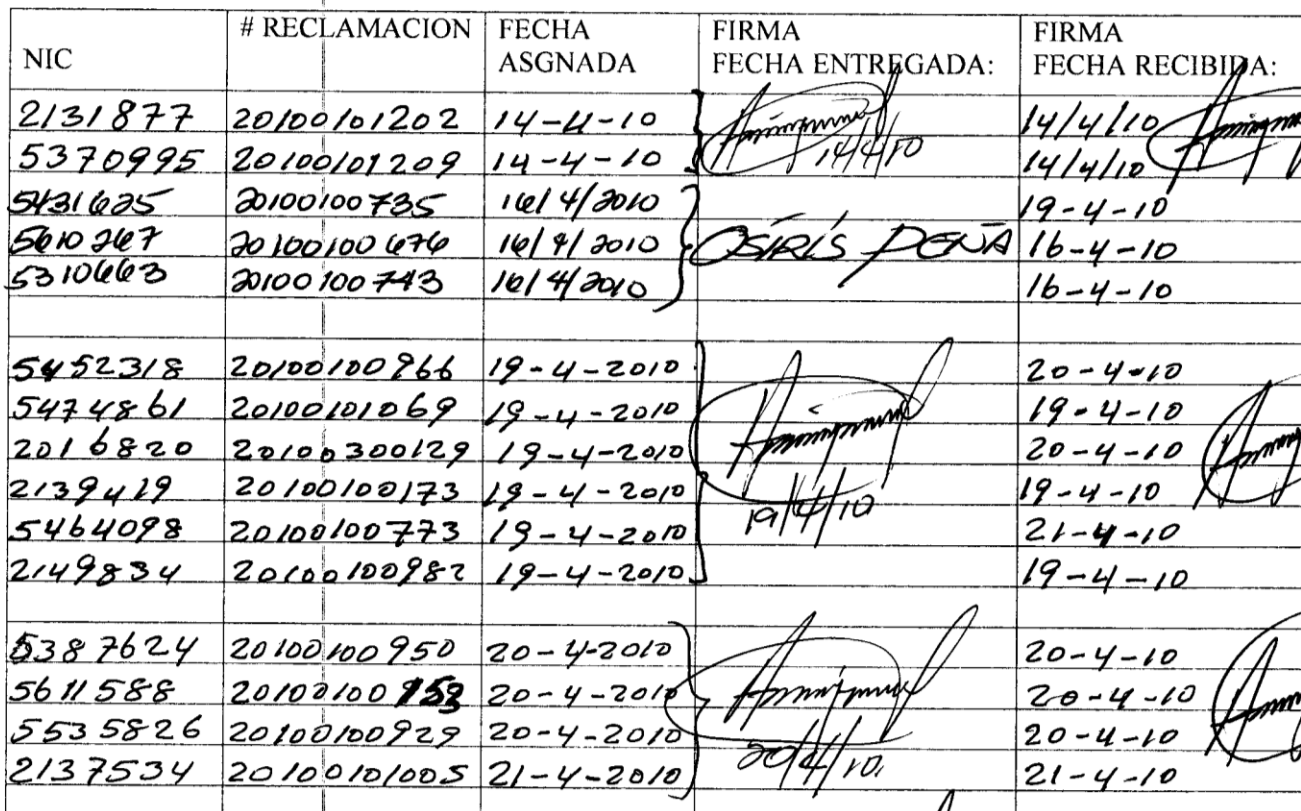 NIC # RECLAMACION FECHA ASGNADA FIRMA FECHA ENTREGADA: FIRMA FECHA RECIBIDA:
2131877 20100101202 14-4-10 14/4/10
5370995 20100101209 14-4-10 14/4/10 14/4/10
5431625 20100100735 16/4/2010 19-4-10
5610267 20100100676 16/4/2010 OSIRIS PEÑA 16-4-10
5310663 20100100743 16/4/2010 16-4-10
5452318 20100100966 19-4-2010 20-4-10
5474861 20100101069 19-4-2010 19-4-10
2016820 20100300129 19-4-2010 20-4-10
2139419 20100100173 19-4-2010 19-4-10
5464098 20100100773 19-4-2010 19/4/10 21-4-10
2149834 20100100982 19-4-2010 19-4-10
5387624 20100100950 20-4-2010 20-4-10
5611588 20100100953 20-4-2010 20-4-10
5535826 20100100929 20-4-2010 20-4-10
2137534 20100101005 21-4-2010 20/4/10 21-4-10